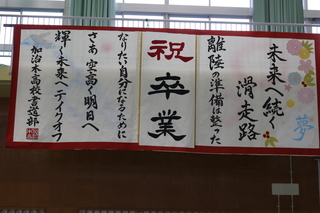 夢
未来へ続く
滑走路
離陸の準備は整った
祝卒業
なりたい自分になるために
さあ 空高く明日へ
輝く未来へテイクオフ
加治木高校書道部